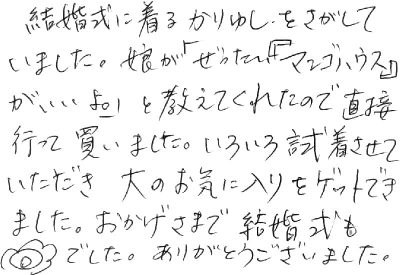 結婚式に着るかりゆしをさがして
いました。娘が「ぜったい『マンゴハウス』
がいいよ。」と教えてくれたので直接
行って買いました。いろいろ試着させて
いただき 大のお気に入りをゲットでき
ました。おかげさまで結婚式も
でした。ありがとうございました。